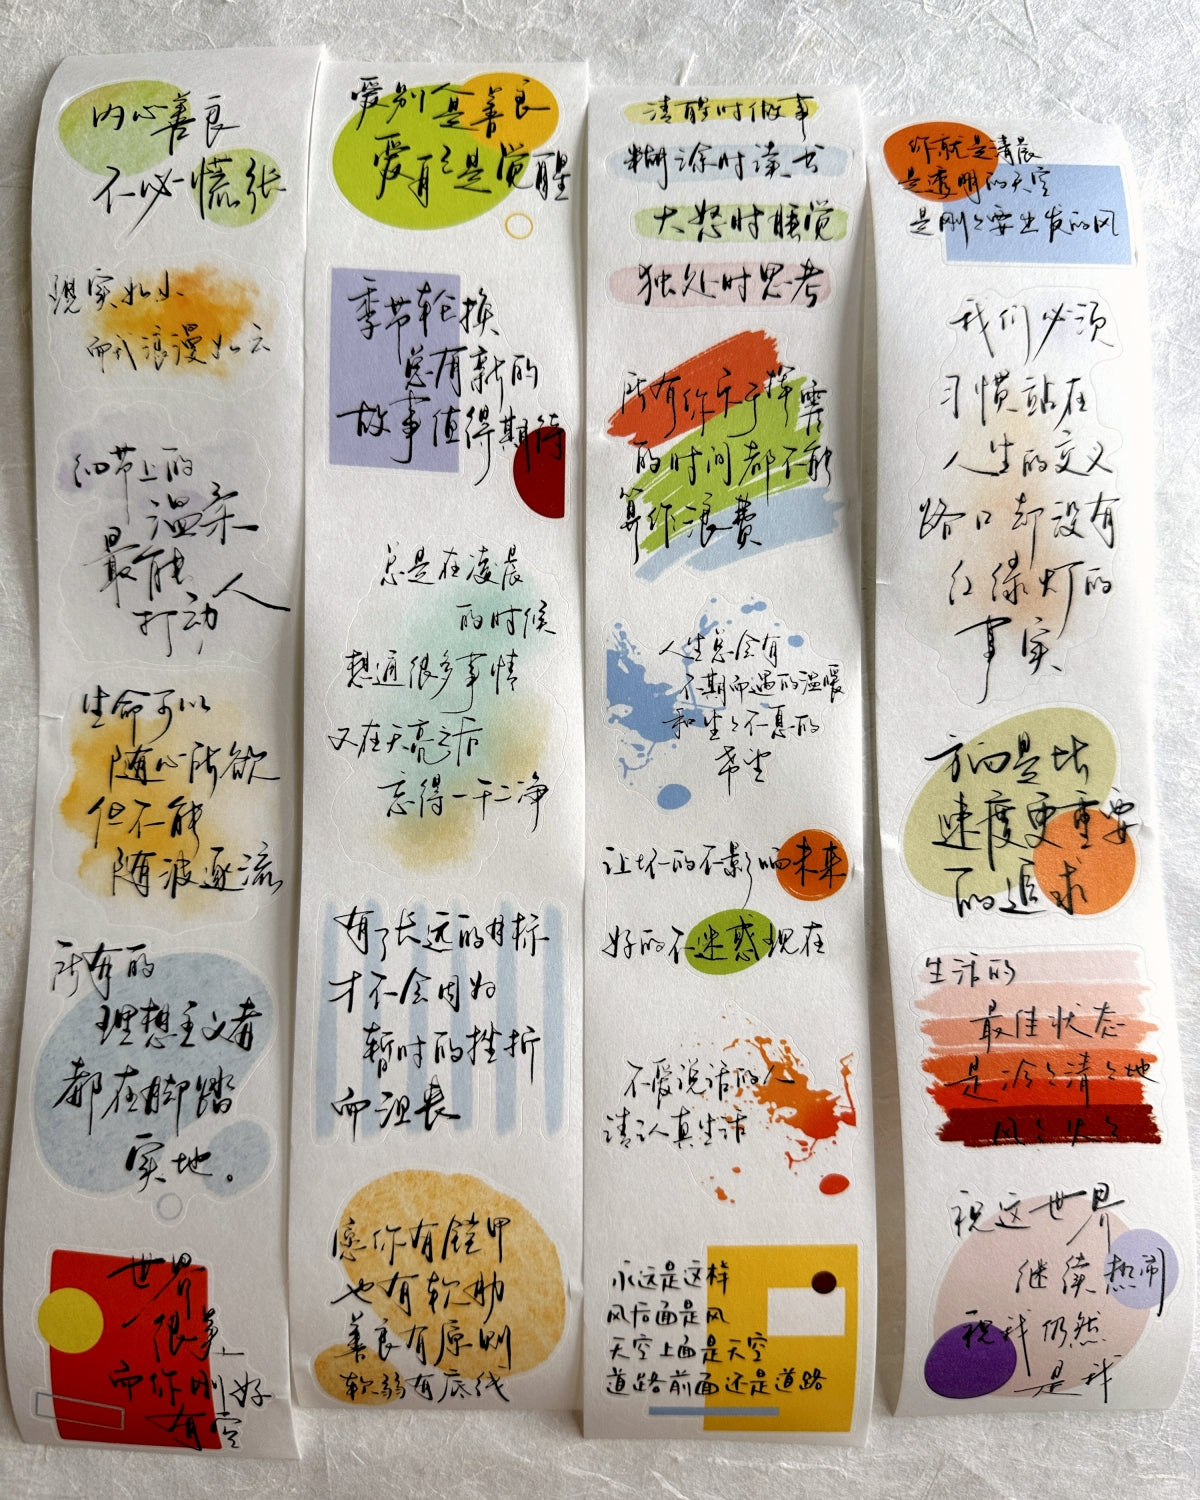 内心善良
不必慌张
现实如山
而我浪漫如云
细节上的
温柔
最能
打动人
生命可以
随心所欲
但不能
随波逐流
所有的
理想主义者
都在脚踏
实地。
世界
很美
而你刚好
有空
爱别人是善良
爱自己是觉醒
季节轮换
总有新的
故事值得期待
总是在凌晨
的时候
想通很多事情
又在天亮之后
忘得一干二净
有了长远的目标
才不会因为
暂时的挫折
而沮丧
愿你有铠甲
也有软肋
善良有原则
软弱有底线
清醒时做事
糊涂时读书
大怒时睡觉
独处时思考
所有你乐于挥霍
的时间都不能
算作浪费
人生总会有
不期而遇的温暖
和生生不息的
希望
让坏的不影响未来
好的不迷惑现在
不爱说话的人
请认真生活
永远是这样
风后面是风
天空上面是天空
道路前面还是道路
你就是清晨
是透明的天空
是刚刚要出发的风
我们必须
习惯站在
人生的交叉
路口却没有
红绿灯的
事实
方向是比
速度更重要
的追求
生活的
最佳状态
是冷冷清清地
风风火火
祝这世界
继续热闹
祝我仍然
是我